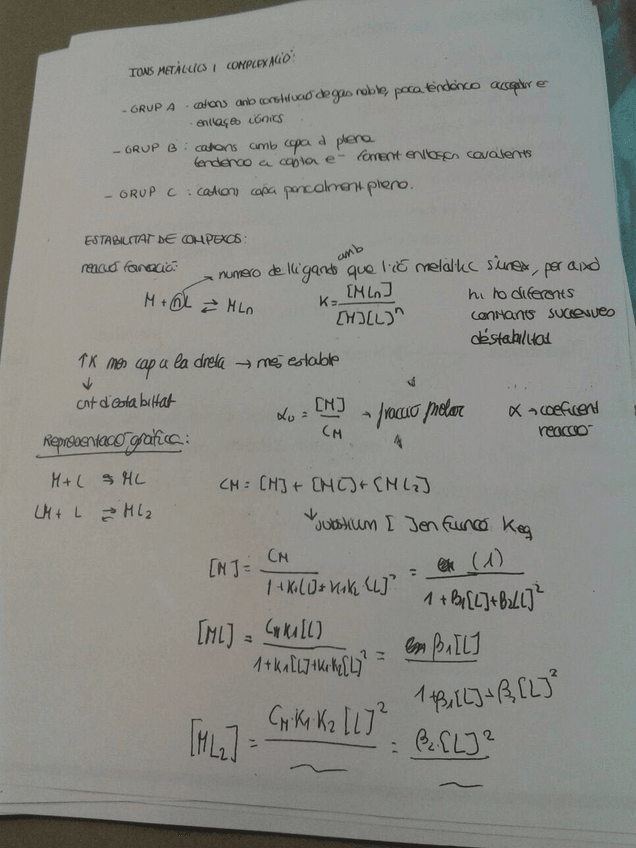 IONS METÀL·LICS I COMPLEXACIÓ:
- GRUP A · cations amb constitució de gas noble, poca tendència acceptar e-
· enllaços iònics
- GRUP B : cations amb capa d plena
tendència a captar e- forment enllaços covalents
- GRUP C : cations capa parcialment plena.
ESTABILITAT DE COMPLEXOS:
reacció formació: → numero de lligands amb que l'ió metàl·lic s'uneix, per això
M + nL ⇌ MLn K = [MLn] / [M][L]^n hi ha diferents
constants successives
d'estabilitat
↑K més cap a la dreta → més estable
↓
cnt d'estabilitat
α0 = [M] / CM → fracció molar α → coeficient
reacció
Representació gràfica:
M + L ⇌ ML
LM + L ⇌ ML2
CM = [M] + [ML] + [ML2]
↓ substituim [ ] en funció Keq
[M] = CM / 1 + K1[L] + K1K2[L]^2 = (1) / 1 + β1[L] + β2[L]^2
[ML] = CM K1[L] / 1 + K1[L] + K1K2[L]^2 = β1[L] / 1 + β1[L] + β2[L]^2
[ML2] = CM·K1·K2[L]^2 / ~ = β2·[L]^2 / ~